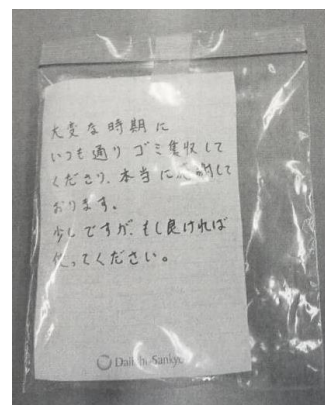 大変な時期に
いつも通りゴミ集収して
くださり、本当に感謝して
おります。
少しですが、もし良ければ
使ってください。
Daiichi-Sankyo